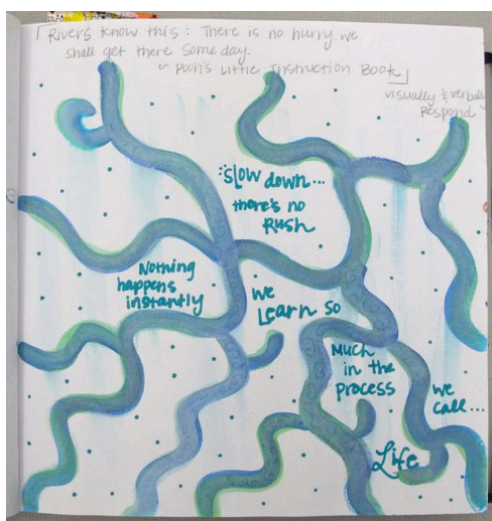 Rivers know this: There is no hurry we
shall get there someday.
~ Pooh's Little Instruction Book
visually & verbally
Respond
:SLOW down...
there's no
Rush
Nothing
happens
instantly
we
Learn so
Much
in the
process
we
call...
Life